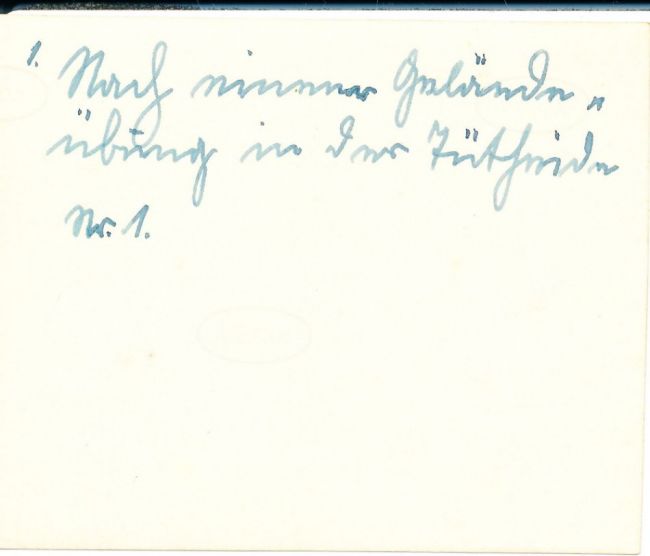 1. Nach einener Gelände„
übung in der Jütheide
Nr. 1.